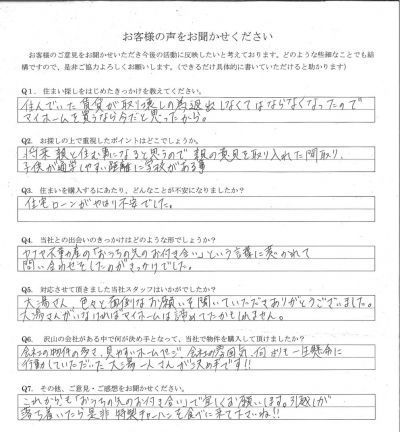 お客様の声をお聞かせください
お客様のご意見をお聞かせいただき今後の活動に反映したいと考えております。どのような些細なことでも結
構ですので、是非ご協力よろしくお願いします。(できるだけ具体的に書いていただけると助かります)
Q1. 住まい探しをはじめたきっかけを教えてください。
住んでいた賃貸が取り壊しの為退出しなくてはならなくなったので
マイホームを買うなら今だと思ったから。
Q2. お探しの上で重視したポイントはどこでしょうか。
将来 親と住む事になると思うので 親の意見を取り入れた間取り、
子供が通学しやすい距離に学校がある事
Q3. 住まいを購入するにあたり、どんなことが不安になりましたか?
住宅ローンがやはり不安でした。
Q4. 当社との出会いのきっかけはどのような形でしょうか?
ヤナセ不動産の「おうちの兄のお付き合い」という言葉に惹かれて
問い合わせをしたのがきっかけでした。
Q5. 対応させて頂きました当社スタッフはいかがでしたか?
大湯さん、色々と面倒なお願いを聞いていただきありがとうございました。
大湯さんがいなければマイホームは諦めてたかもしれません。
Q6. 沢山の会社がある中で何が決め手となって、当社で物件を購入して頂けましたか?
会社の物件の多さ、見やすいホームページ 会社の雰囲気 何よりも一生懸命に
行動していただいた 大湯 一人さんが決め手です!!
Q7. その他、ご意見・ご感想をお聞かせください。
これからも「おうちの兄のお付き合い」で宜しくお願いします。引越しが
落ち着いたら是非 特製チャーハンを食べに来て下さいね!!